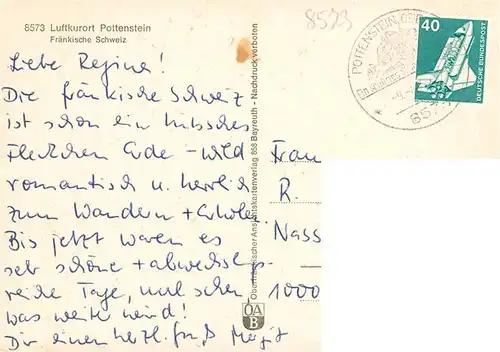 8573 Luftkurort Pottenstein
Fränkische Schweiz
8573
POTTENSTEIN, OBERFR
857
40
DEUTSCHE BUNDESPOST
Liebe Regine!
Die fränkische Schweiz
ist schon ein hübsches
Fleckchen Erde - wild
romantisch u. herrlich
zum Wandern + Erholen
Bis jetzt waren es
sehr schöne + abwechslungs-
reiche Tage, mal sehen
was weiter wird!
Dir einen herzl. Gruß Margit
Oberfränkischer Ansichtskartenverlag 858 Bayreuth - Nachdruck verboten
OA
B
Frau
R.
Nass
1000